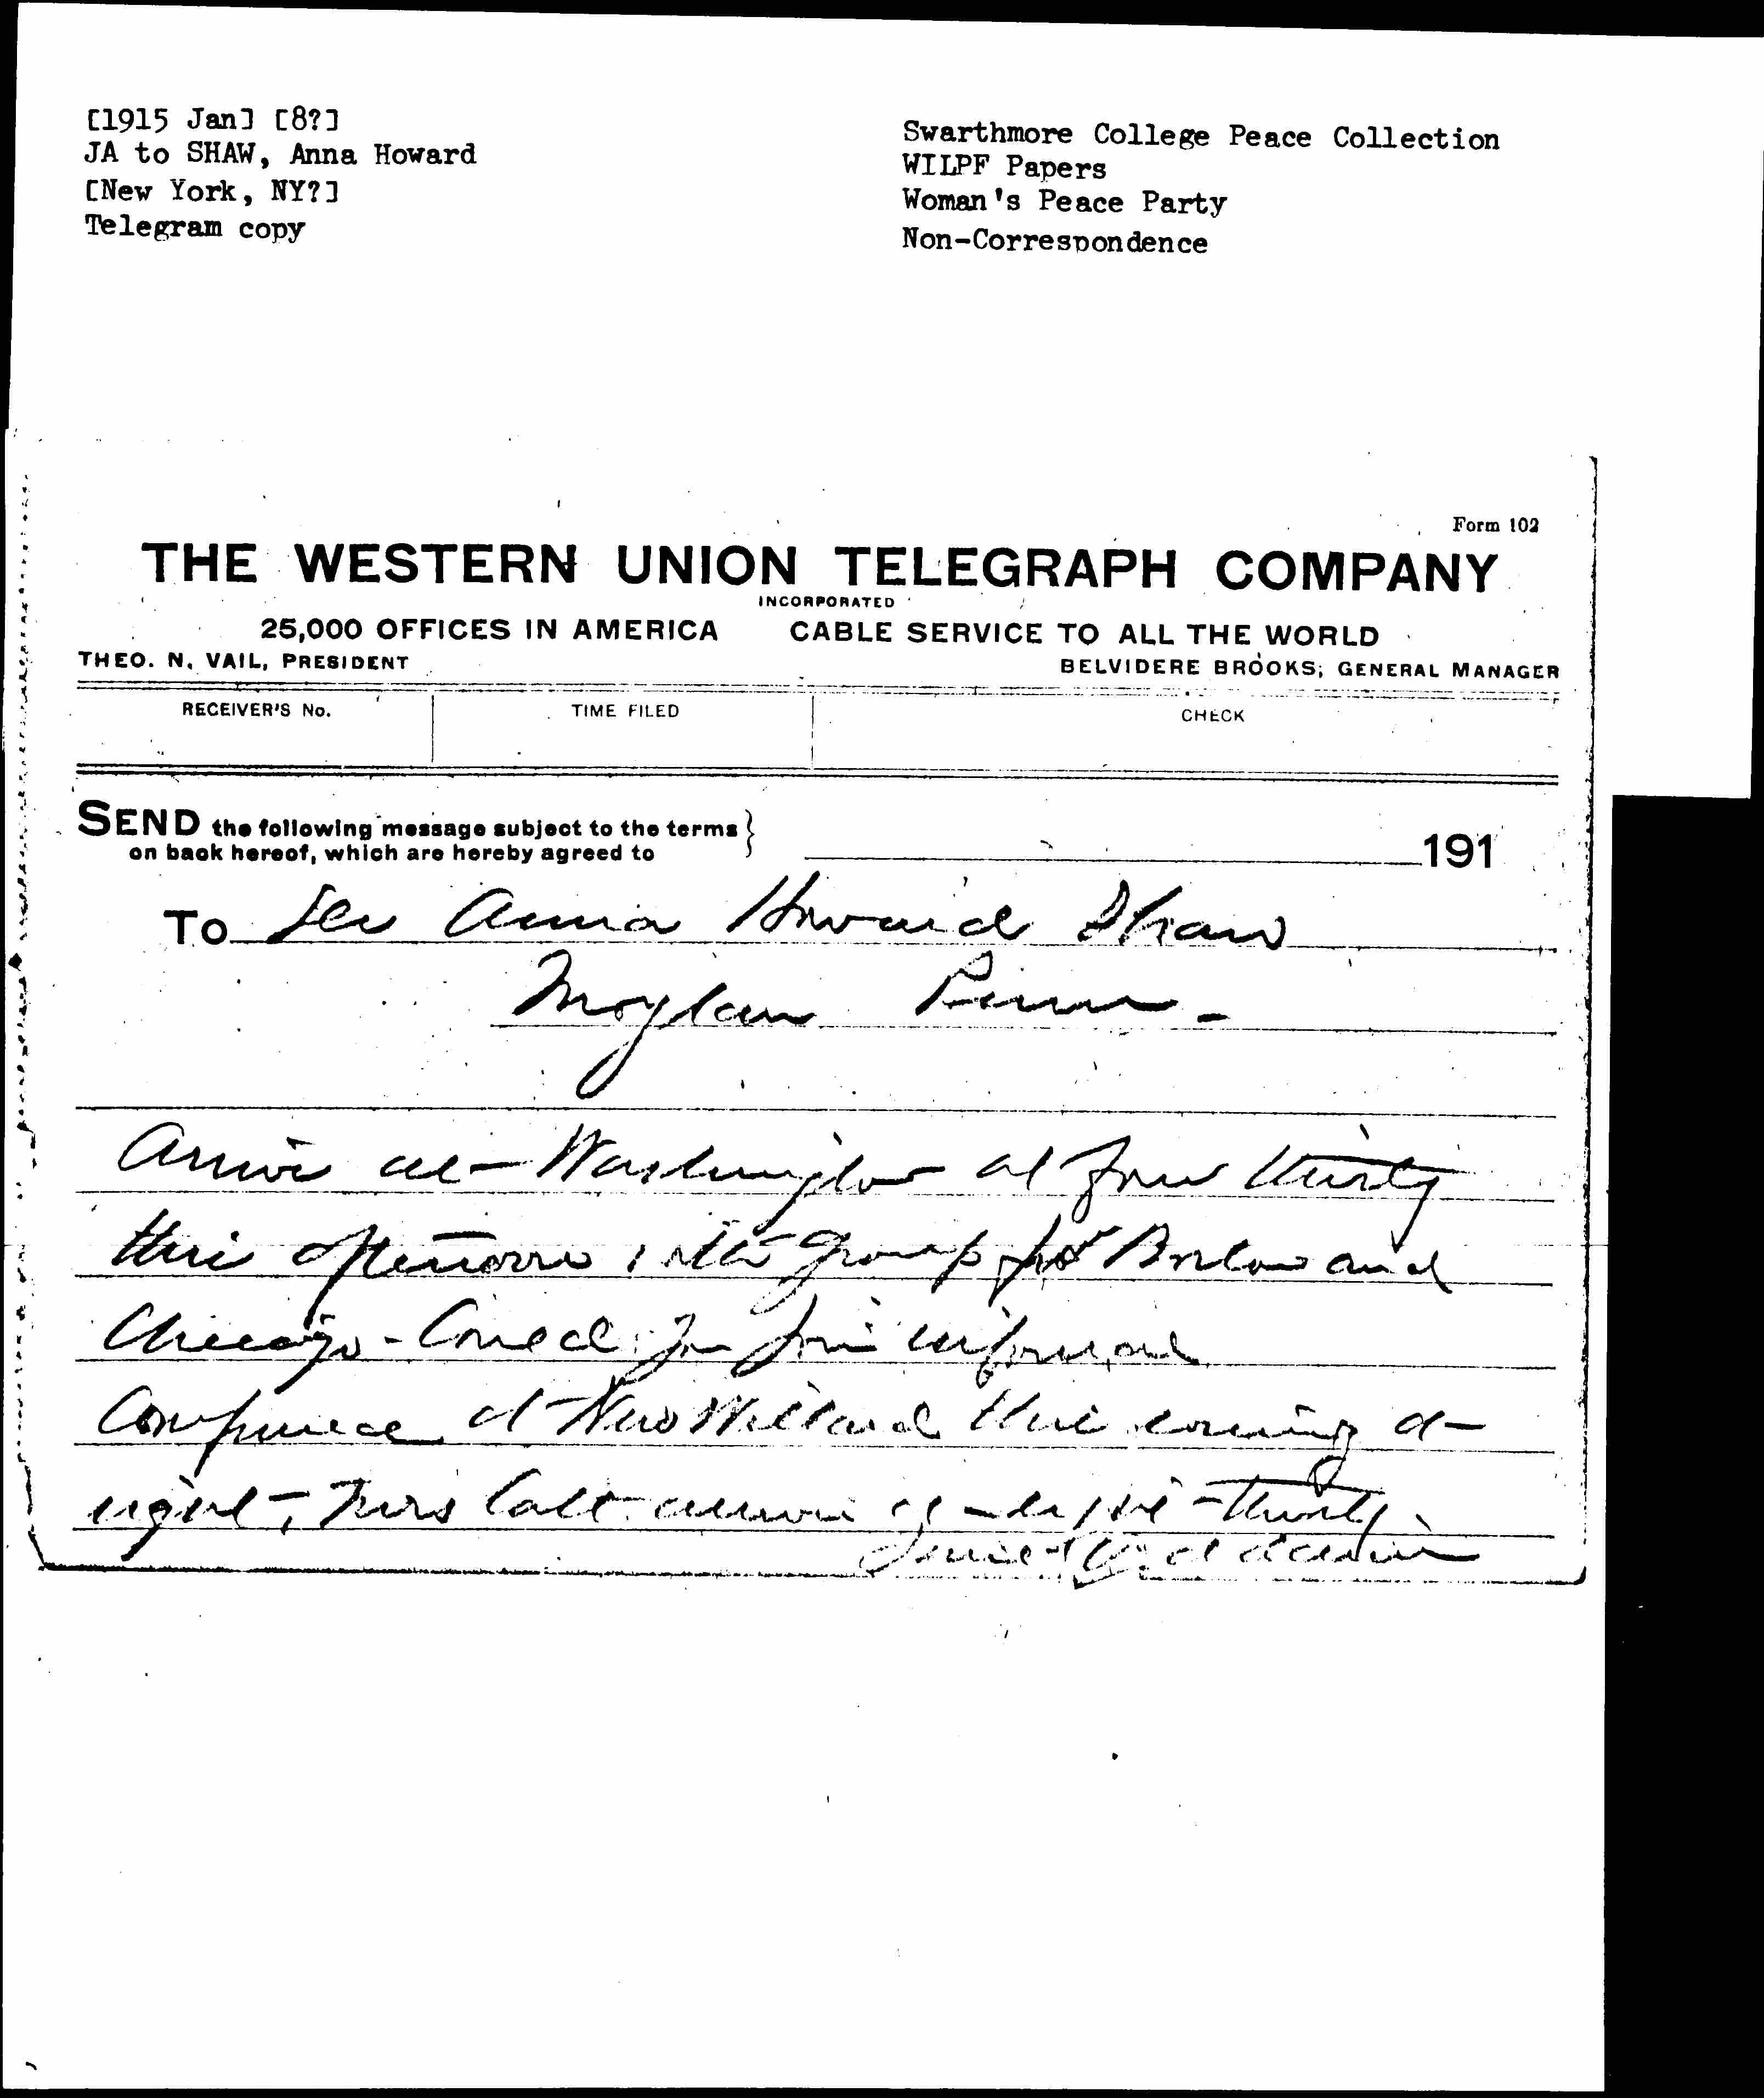 [1915 Jan] [8?]
JA to SHAW, Anna Howard
[New York, NY?]
Telegram copy
Swarthmore College Peace Collection
WILPF Papers
Woman's Peace Party
Non-Correspondence
Form 102
THE WESTERN UNION TELEGRAPH COMPANY
INCORPORATED
25,000 OFFICES IN AMERICA CABLE SERVICE TO ALL THE WORLD
THEO. N. VAIL, PRESIDENT BELVIDERE BROOKS, GENERAL MANAGER
RECEIVER'S No. TIME FILED CHECK
SEND the following message subject to the terms
on back hereof, which are hereby agreed to
191
To Rev Anna Howard Shaw
Moylan Penn -
Arrive at Washington at four thirty
this afternoon with group from Boston and
Chicago - Could you join informal
Conference at New Willard this evening at
eight, Mrs Catt arrives at six thirty.
Jane Addams